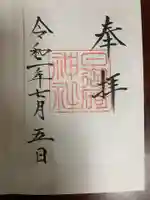 奉拝
神社
令和二年七月五日